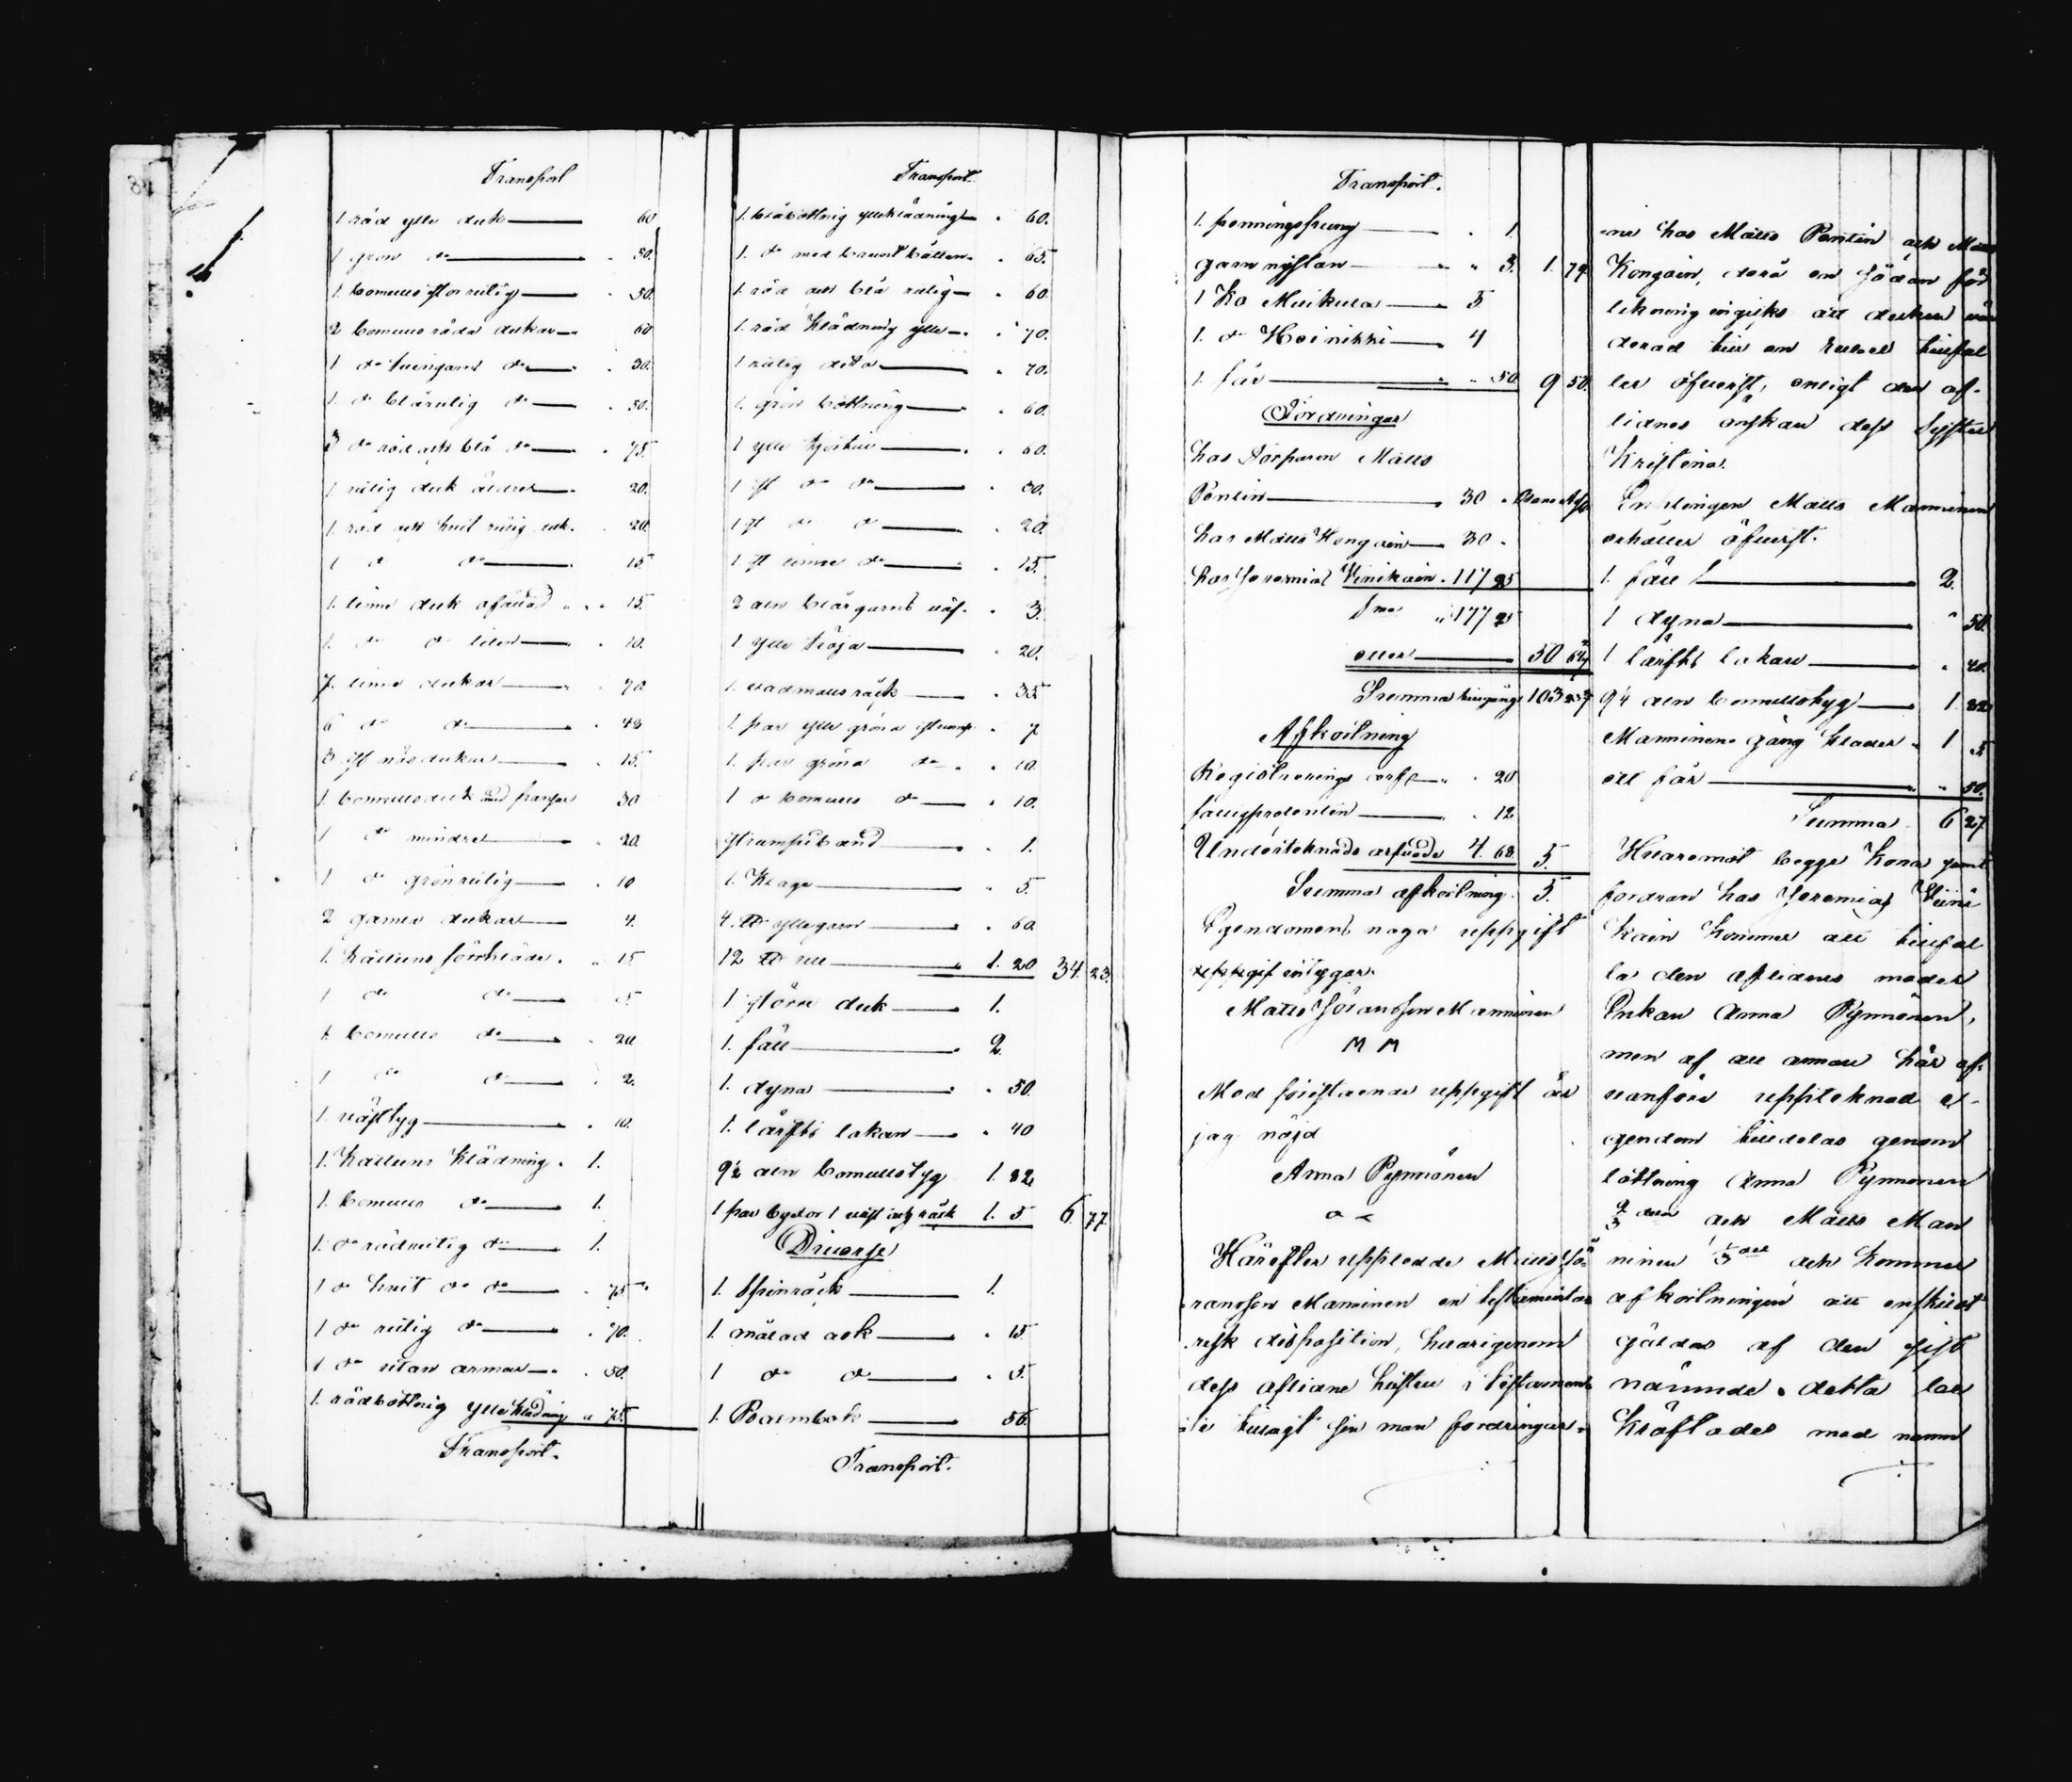 Transport
1 röd ylle duk 60
1 grön d:o 50.
1 bomulls st or rutig 50.
2 bomulls röda dukar 60
1 d:o tvingarns d:o 30.
1 d:o blårutig d:o 50.
3 d:o röd och blå d:o 75.
1 rutig duk äldre 20.
1 röd och hvit rutig duk 20.
1 d:o d:o 15
1 linne duk 15.
1 d:o d:o liten 10.
7 linne dukar 70
6 d:o d:o 48
3 st näsdukar 15.
1 bomulls duk med fransar 30
1 d:o mindre 20.
1 d:o grönrutig 10
2 gamla dukar 4.
1 kattuns förkläde 15
1 d:o d:o 5.
1 bomulls d:o 20
1 d:o d:o 2.
1 västtyg 10.
1 kattuns klädning 1.
1 bomulls d:o 1.
1 d:o rödrutig d:o 1.
1 d:o hvit d:o d:o 75
1 d:o rutig d:o 70.
1 d:o utan armar 50.
1 rödbottnig ylleklädning 75.
Transport.
Transport.
1 blåbottnig ylleklädning 60.
1 d:o med brunt botten 65.
1 röd och blå rutig 60.
1 röd klädning ylle 70.
1 rutig dito 70.
1 grön bottning 60.
1 ylle kjortel 60.
1 st d:o d:o 30.
1 st d:o d:o 20.
1 st linne d:o 15.
2 aln blårgarns väf 3.
1 ylle tröja 20.
1 vadmals råck 35
1 par ylle gröna strump 7
1 par gröna d:o 10.
1 d:o bomulls d:o 10.
strumpeband 1.
1 Krage 5.
4 ℔ yllegarn 60.
12 ℔ ull 1. 20 34. 23.
1 större duk 1.
1 fäll 2.
1 dyna 50.
1 lärfts lakan 40
9½ aln bomullstyg 1. 82
1 par byxor 1 väst och råck 1. 5 6. 77.
Diverse
1 Spinråck 1.
1 målad ask 15
1 d:o d:o 5.
1 Psalmbok 56.
Transport.
Transport.
1 penningspung 1.
garn nystan 3. 1. 79
1 Ko Muikula 5
1 d:o Heinikki 4
1 får 50 9 50.
Fordringar
hos Torparen Matts
Pentin 30
hos Matts Kongain 30
hos Jeremias Vinikain 117 25
S:ma 177 25
eller 50 64 2/7
Summa tillgång 103
Afkortning
Registrerings 20
fattigprocenten 12
Undertecknads arfvode 4. 68 5.
Summa afkortning. 5.
Egendomens noga uppgift
uppgif intygar.
Matts Göransson Manninen
M M
Med förestående uppgift är
jag nöjd
Anna Pynnönen
Härefter uppledde Matts Gö-
ransson Manninen en testamenta
risk disposition, hvarigenom
dess aflidne hustru i testamen
te tillagt sin man fordringar-
ne hos Matts Pentin och Matts
Kongain, dock en sådan för
likning ingicks att duken vär
derad till en rubel tillfal
ler öfverst, enligt den af-
lidnes önskan dess syster
Kristina.
Enklingen Matts Manninen
erhåller öfverst.
1 fäll 2.
1 dyna 50.
1 lärfts lakan 40
9½ aln bomullstyg 1. 82
Manninens gång kläder 1 5
ett får 50.
Summa 6 27
Hvaremot begge Korna jemte
fordran hos Jeremias Viini
kain kommer att tillfal
la den aflidnes moder
Enkan Anna Pynnönen,
men af all annan här of-
vanföre upptecknad e-
gendom tilldelas genom
lottning Anna Pynnönen
2/3 delar och Matts Man
ninen 1/3 del och kommer
afkortningen att enskildt
gäldas af den sist
nämnde. detta be
kräftades med namn